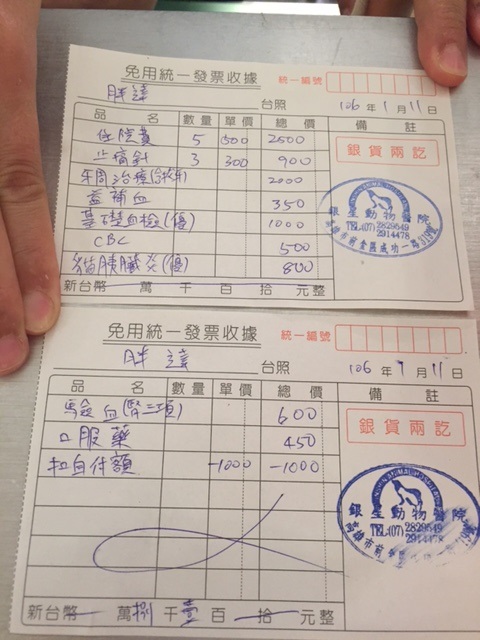 免用統一發票收據
統一編號
胖達
台照
106年1月11日
品名 數量 單價 總價 備註
住院費 5 500 2500
止痛針 3 300 900
2000
益補血 350
基礎血檢(優) 1000
CBC 500
貓胰臟炎(優) 800
新台幣 萬 千 百 拾 元整
銀貨兩訖
銀星動物醫院
TEL:(07)2829649
2914478
高雄市前金區成功一路
免用統一發票收據
統一編號
胖達
台照
106年1月11日
品名 數量 單價 總價 備註
驗血(腎三項) 600
口服藥 450
扣自付額 -1000 -1000
新台幣 萬捌千壹百 拾 元整
銀貨兩訖
銀星動物醫院
TEL:(07)2829649
2914478
高雄市前金